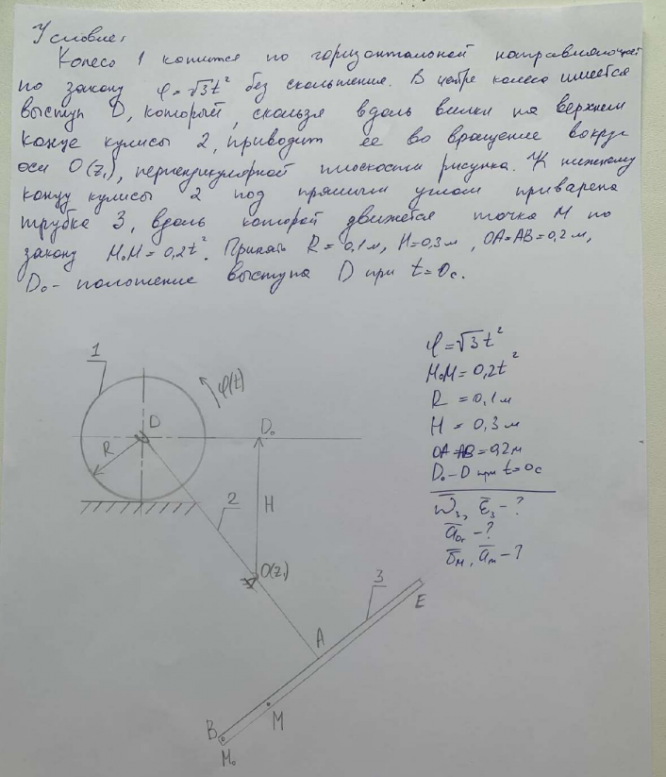 Условие:
Колесо 1 катится по горизонтальной направляющей
по закону φ = √3t² без скольжения. В центре колеса имеется
выступ D, который, скользя вдоль вилки на верхнем
конце кулисы 2, приводит ее во вращение вокруг
оси O(z₁), перпендикулярной плоскости рисунка. К нижнему
концу кулисы 2 под прямым углом приварена
трубка 3, вдоль которой движется точка M по
закону M₀M = 0,2t². Принять R = 0,1м, H = 0,3м, OA=AB=0,2м,
D₀ - положение выступа D при t=0с.
φ = √3t²
M₀M = 0,2t²
R = 0,1м
H = 0,3м
OA=AB=0,2м
D₀-D при t=0с
ω̄₃, ε̄₃ - ?
- ?
ῡM, āM - ?
1
φ(t)
D
D₀
R
2
H
O(z₁)
3
E
A
B
M
M₀